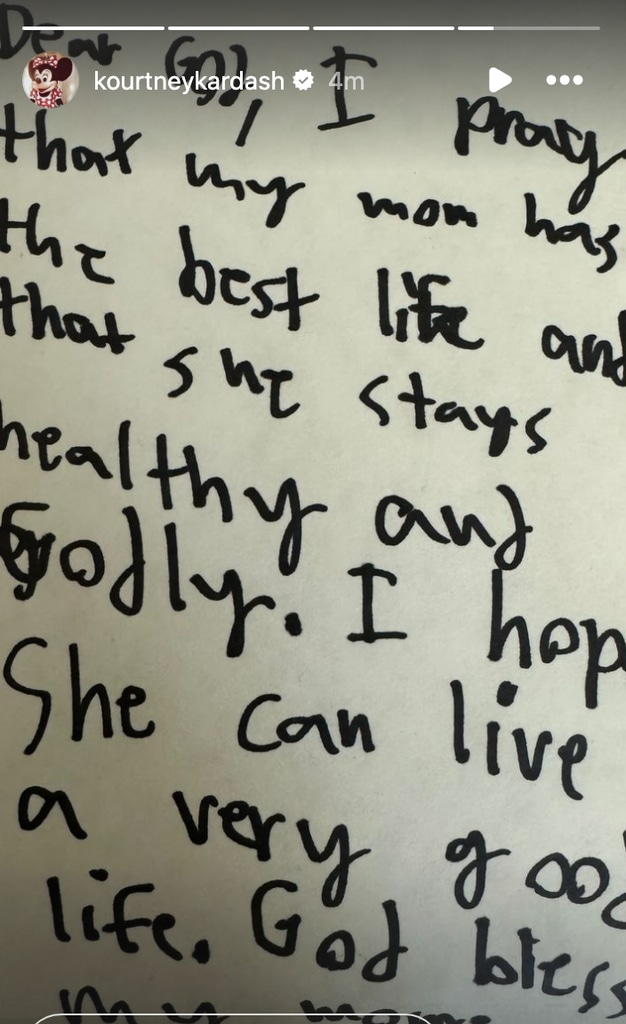 Dear God, I pray
kourtneykardash 4m
that my mom has
the best life and
that she stays
healthy and
Godly. I hop
She can live
a very good
life. God bless
my mom